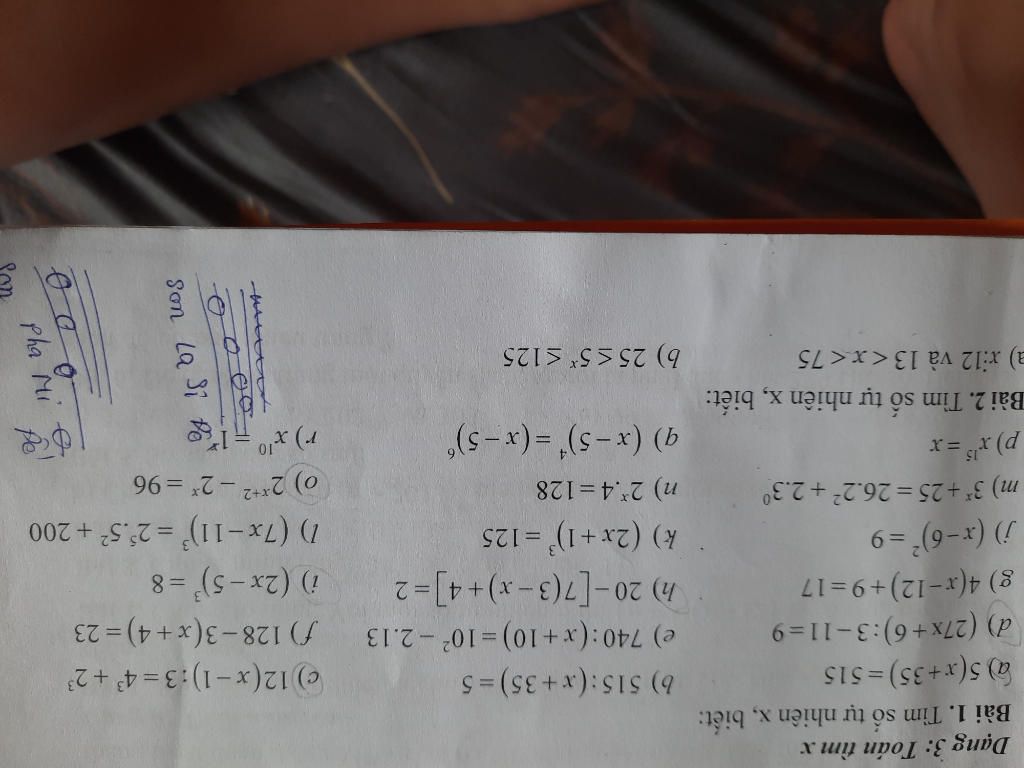 Dạng 3: Toán tìm x
Bài 1. Tìm số tự nhiên x, biết:
a) 5(x+35)=515 b) 515:(x+35)=5 c) 12(x−1):3=4³+2³
d) (27x+6):3−11=9 e) 740:(x+10)=10²−2.13 f) 128−3(x+4)=23
g) 4(x−12)+9=17 h) 20−[7(3−x)+4]=2 i) (2x−5)³=8
j) (x−6)²=9 k) (2x+1)³=125 l) (7x−11)³=2⁵.5²+200
m) 3ˣ+25=26.2²+2.3⁰ n) 2ˣ.4=128 o) 2ˣ⁺²−2ˣ=96
p) x¹⁵=x q) (x−5)⁴=(x−5)⁶ r) x¹⁰=1ˣ
Bài 2. Tìm số tự nhiên x, biết:
a) x⋮12 và 13<x<75 b) 25≤5ˣ≤125
son la sì đê
pha mi
son